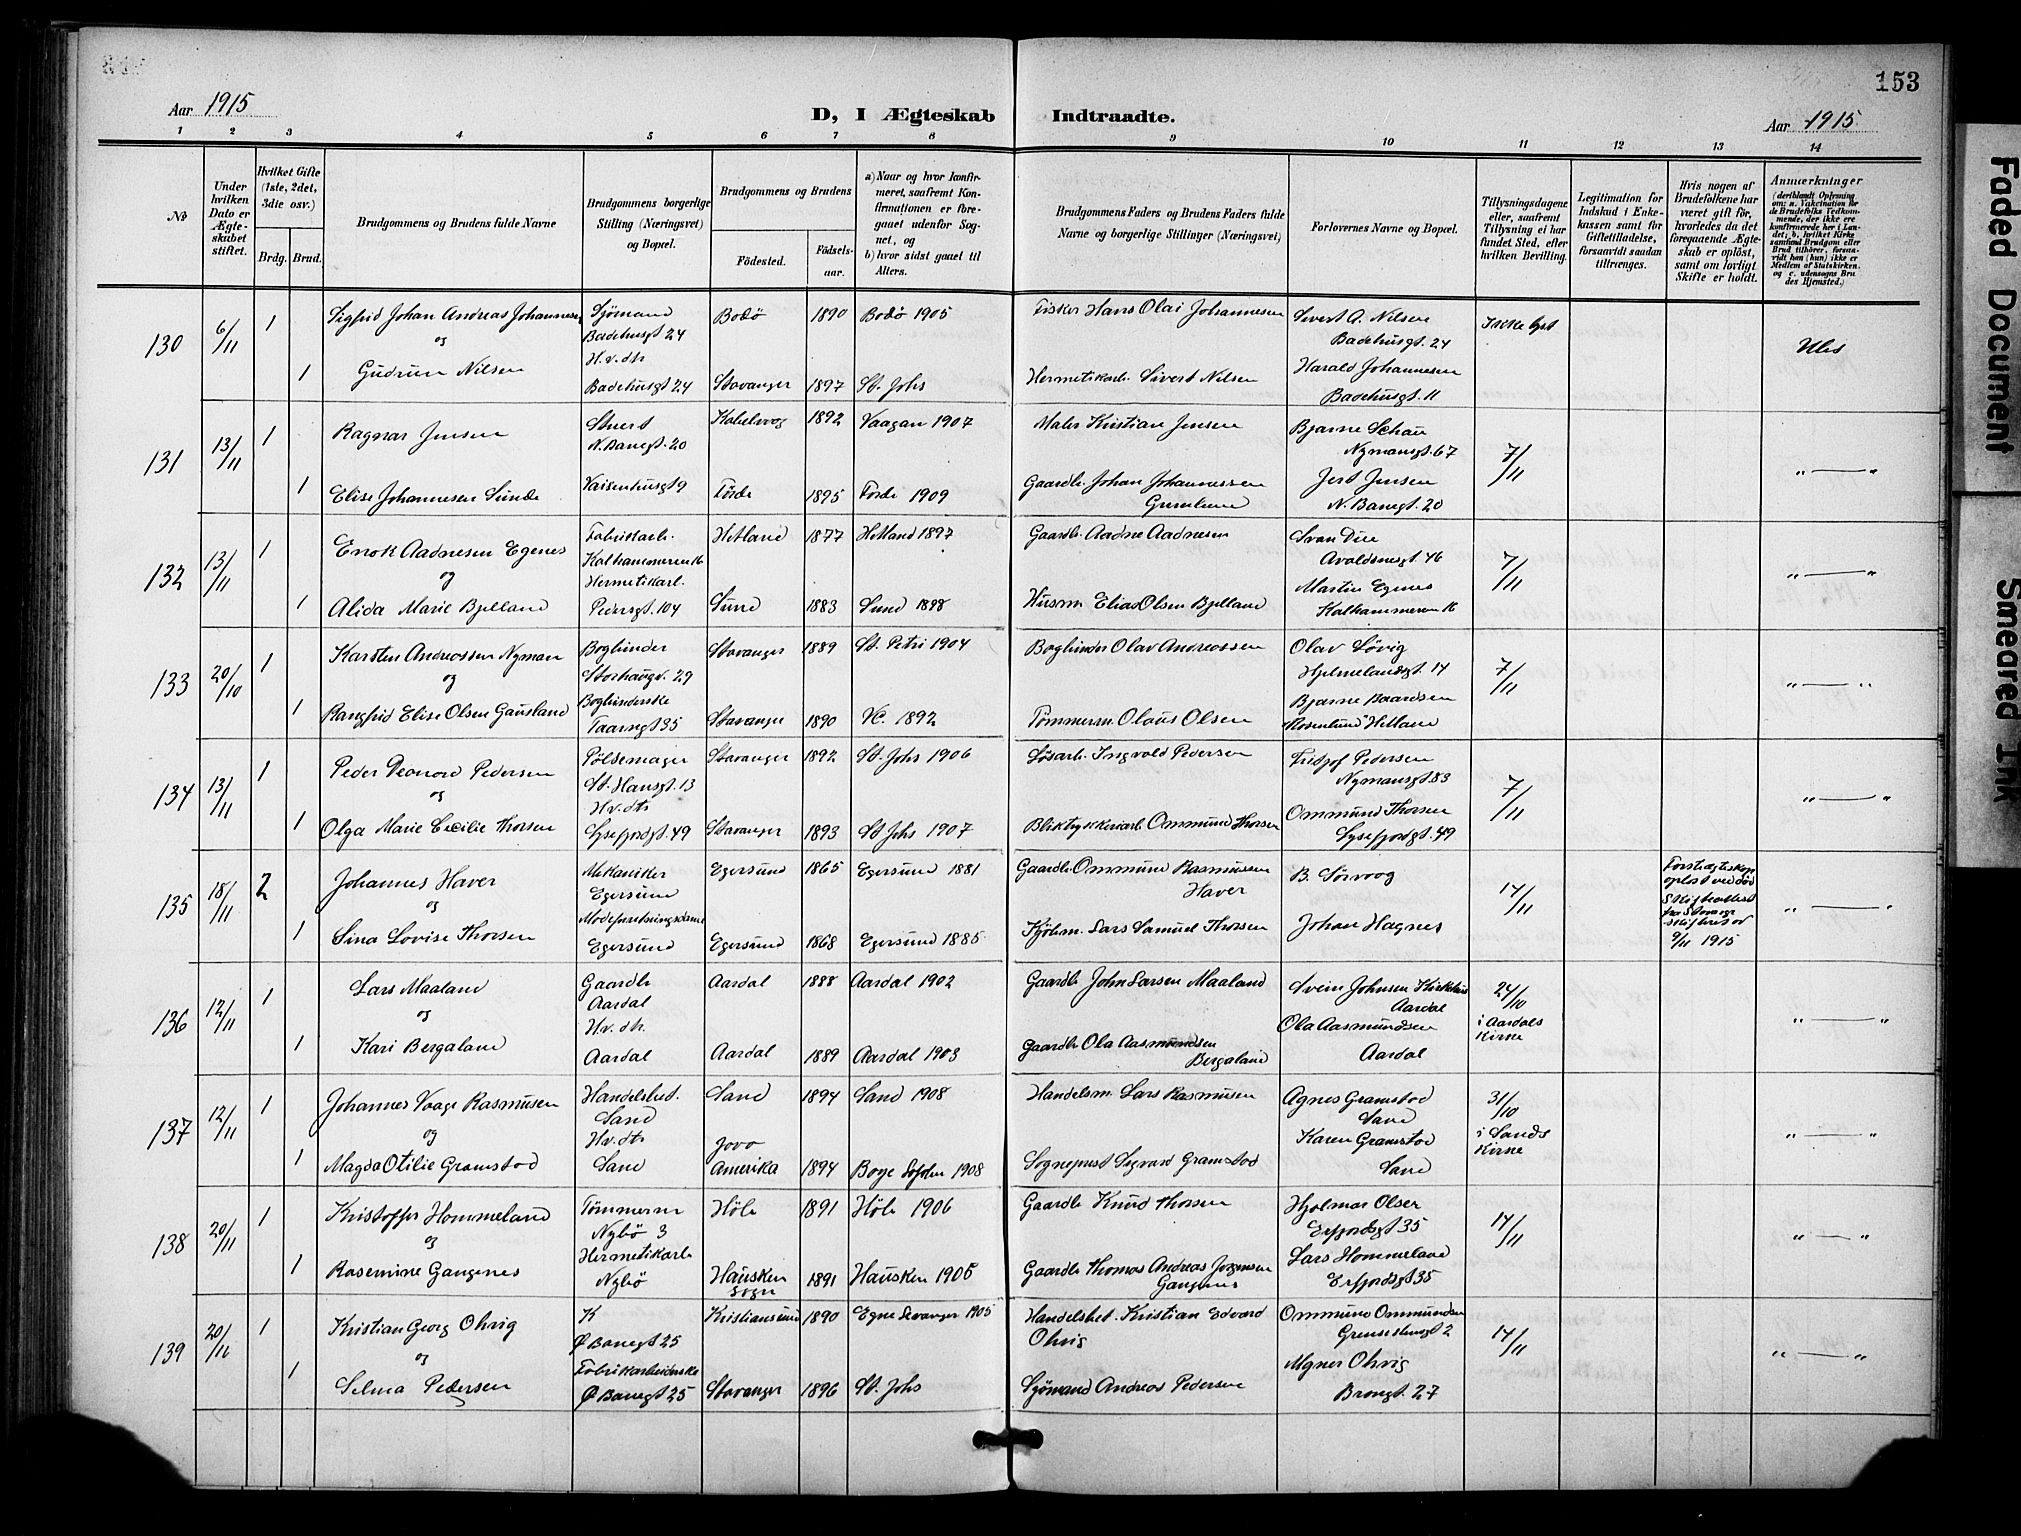 153
Aar 1915
D, I Ægteskab Indtraadte.
Aar 1915
1 2 3 4 5 6 7 8 9 10 11 12 13 14
№
Under hvilken Dato er Ægteskabet stiftet.
Hvilket Gifte (1ste, 2det, 3die osv.)
Brdg. Brud.
Brudgommens og Brudens fulde Navne
Brudgommens borgerlige Stilling (Næringsvei) og Bopæl.
Brudgommens og Brudens
Fødested.
Fødselsaar.
a) Naar og hvor konfirmeret, saafremt Konfirmationen er foregaaet udenfor Sognet, og
b) hvor sidst gaaet til Alters.
Brudgommens Faders og Brudens Faders fulde Navne og borgerlige Stillinger (Næringsvei)
Forlovernes Navne og Bopæl.
Tillysningsdagene eller, saafremt Tillysning ei har fundet Sted, efter hvilken Bevilling.
Legitimation for Indskud i Enkekassen samt for Giftetilladelse, forsaavidt saadan tiltrænges.
Hvis nogen af Brudefolkene har været gift før, hvorledes da det foregaaende Ægteskab er opløst, samt om lovligt Skifte er holdt.
Anmærkninger
(deriblandt Oplysning om: a. Vakcination for de Brudefolks Vedkommende, der ikke ere konfirmerede her i Landet; b. hvilket Kirkesamfund Brudgom eller Brud tilhører, forsaavidt han (hun) ikke er Medlem af Statskirken, og c. udensogns Brudes Hjemsted.)
130 6/11 1 Sigfrid Johan Andreas Johannesen Sjömand Bodö 1890 Bodö 1905 Fisker Hans Olai Johannesen Sivert A. Nilsen Ikke lyst
og Badehusgt 24 Badehusgt. 24
H.v. dtr Harald Johannesen
1 Gudrun Nilsen Badehusgt 24 Stavanger 1897 St. Johs Hermetikarb. Sivert Nilsen Badehusgt. 11
131 13/11 1 Ragnar Jensen Stuert Kabelvog 1892 Vaagan 1907 Maler Kristian Jensen Bjarne Schau 7/11 „ — “
N. Banegt. 20 Nymansgt. 67
1 Elise Johannesen Sunde Vaisenhusgt 9 Förde 1895 Förde 1909 Gaardb. Johan Johannessen Jensen
N. Banegt. 20
132 13/11 1 Enok Aadnesen Egenes Fabrikarb. Hetland 1877 Hetland 1897 Gaardb. Aadne Aadnesen 7/11 „ — “
og Kalhammeren 16 Avaldsnesgt. 46
Hermetikarb. Martin Egenes
1 Alida Marie Bjelland Pedersgt. 104 Sund 1883 Sund 1898 Husm. Elias Olsen Bjelland Kalhammeren 16
133 20/10 1 Karsten Andreassen Nyman Bogbinder Stavanger 1889 St. Petri 1904 Bogbinder Olav Andreassen Olav Lövig 7/11 „ — “
og Storhaugv. 29 Hjelmelandsgt. 14
Bogbinderske Bjarne Baardsen
1 Rangfrid Elise Olsen Gausland Taarngt 35 Stavanger 1890 1892 Tömmerm. Olaus Olsen Rosenlund Hetland
134 13/11 1 Peder Leonard Pedersen Pölsemager Stavanger 1892 St. Johs 1906 Lösarb. Ingvald Pedersen Fridjof Pedersen 7/11 „ — “
og St. Hansgt. 13 Nymansgt. 83
H.v. dtr Ommund Thorsen
1 Olga Marie Cecilie Thorsen Lysefjordgt. 49 Stavanger 1893 St Johs 1907 Bliktrykkeriarb Ommund Thorsen Lysefjordgt. 49
135 18/11 2 Johannes Haver Mekaniker Egersund 1865 Egersund 1881 Gaardb. Ommund Rasmussen Haver B. Sörvoog 14/11 „ — “
og Egersund
1 Sina Lovise Thorsen Egersund Egersund 1868 Egersund 1885 Kjöbm. Lars Samuel Thorsen Johan Hagnes
9/11 1915
136 12/11 1 Lars Maaland Gaardb Aardal 1888 Aardal 1902 Gaardb. John Larsen Maaland Svein Johnsen 24/10 „ — “
og Aardal Aardal i Aardals Kirke
H.v. dtr. Ola Aasmundsen
1 Kari Bergaland Aardal Aardal 1889 Aardal 1903 Gaardb Ola Aasmundsen Bergaland Aardal
137 12/11 1 Johannes Vaage Rasmusen Handelsbet. Sand 1894 Sand 1908 Handelsm. Lars Rasmusen Agnes Gramstad 31/10 „ — “
og Sand Sand i Sands Kirke
H.v. dtr Jova Karen Gramstad
1 Magda Otilie Gramstad Sand Amerika 1894 1908 Sogneprest Sigvard Gramstad Sand
138 20/11 1 Kristoffer Hommeland Tömmerm Höle 1891 Höle 1906 Gaardb Knud Thorsen Hjalmar Olsen 14/11 „ — “
og Nybö 3 Erfjordgt 35
Hermetikarb Lars Hommeland
1 Rasmine Gangenes Nybö Hausken Sogn 1891 Hausken 1905 Gaardb Thomas Andreas Jorgensen Gangenes Erfjordgt 35
139 20/11 1 Kristian Georg Ohrig K Kristiansund 1890 1905 Handelsbet. Kristian Edvard Ohrig Ommund Ommundsen 14/11 „ — “
og Ø Banegt 25
Fabrikarbeiderske Ohrig
1 Selma Pedersen Ø Banegt 25 Stavanger 1896 St. Johs Sjömand Andreas Pedersen Brongt. 27
Faded Document
Smeared Ink